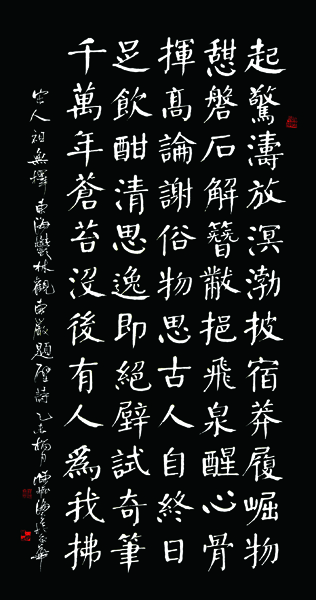 起驚濤放溟渤披宿莽履崛物
憇磐石解簪黻挹飛泉醒心骨
揮高論謝俗物思古人自終日
足飲酣清思逸即絕壁試奇筆
千萬年蒼苔沒後有人爲我拂
宋人祖無擇東海鬱林觀東巖題壁詩